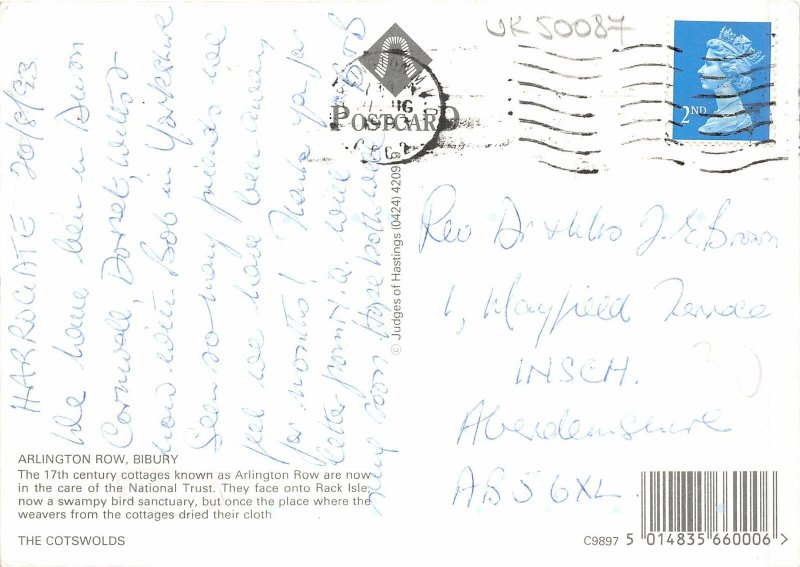 UK50087
2ND
POSTCARD
HARROGATE 20/8/93
We have been in Devon
Cornwall, Dorset, Wilts &
now with Bob in Yorkshire
Seen so many friends we
feel we have been away
for months! Thank you for
letter from
soon Hope both well
© Judges of Hastings (0424) 4209
Rev Dr & Mrs J. E. Brown
1, Mayfield Terrace
INSCH.
Aberdeenshire
AB5 6XL.
30
ARLINGTON ROW, BIBURY
The 17th century cottages known as Arlington Row are now
in the care of the National Trust. They face onto Rack Isle,
now a swampy bird sanctuary, but once the place where the
weavers from the cottages dried their cloth
THE COTSWOLDS
C9897 5 014835 660006 >